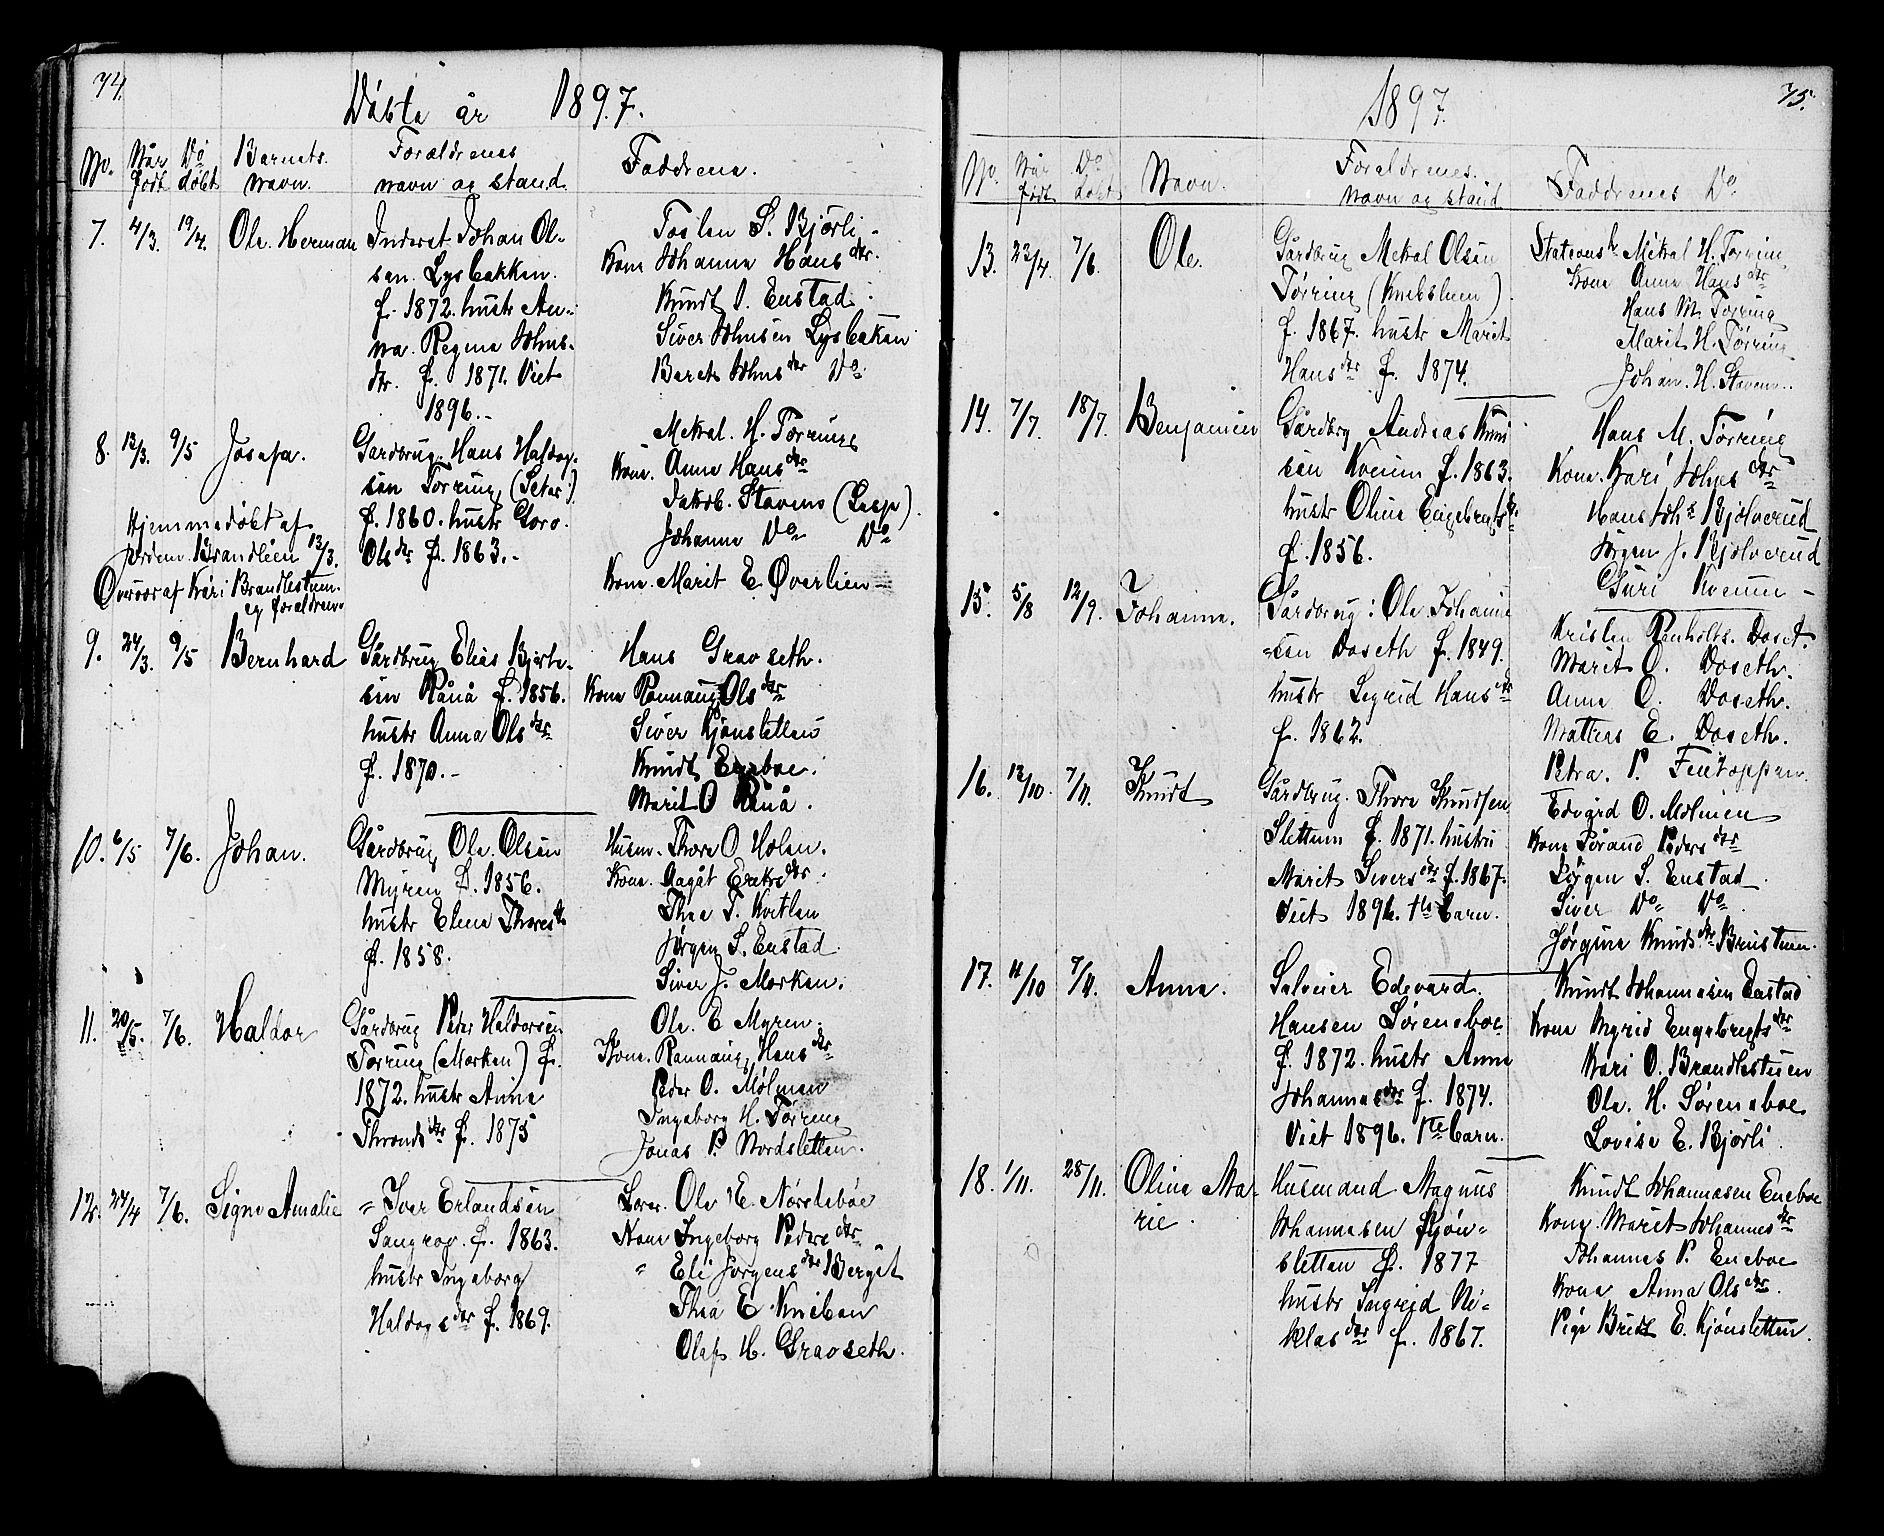 74.
Döbte år 1897.
No. Når født Do døbt Barnets navn. Forældrenes navn og stand. Faddrene.
7. 4/3. 19/4. Ole. Herman
Inderst. Johan Ol-
sen. Lysbakken.
f. 1872. hustr An-
na. Regine Johns-
dtr. f. 1871. Viet
1896.-
S. Bjørli
Kone Johanne Hans dtr.
Knudt J. Enstad.
Siver Johnsen Lysbaken
Beret Johns dtr Do
8. 13/3. 9/5 Josefa.
Hjemmedøbt af
Jordem. Brandlien 13/3.
Overvær af Kari Brandlestuen.
og forældrene
Gardbrug. Hans Haldog.
sen Tørring, (Seter)
f. 1860. hustr Goro.
Ols dtr f. 1863.-
Mekal. H. Tørring
Kone. Anne Hans dtr
Jakob. Stavens (Lesp).
Johanne Do Do
Kone. Marit E Øverlien
9. 24/3. 9/5 Bernhard
Gårdbrug Elias
sen Rånå f. 1856.
hustr Anna Ols dtr
f. 1870.-
Hans Gravseth.
Kone Rannaug Ols dtr
Siver Kjønsletten
Knudt Eneboe.
Marit O Rånå.
10. 6/5 7/6. Johan.
Gårdbrug Ole. Olsen
Myren f. 1856.
hustr Elene Thores dtr
f. 1858.
Husm. Thore O Holen.
Kone. Aagåt Eriks dtr.
Thea T. Kvitlen
Jørgen S. Enstad
Siver J. Morken.
11. 20/5. 7/6. Haldor
Gårdbrug Peder Haldorsen
Tørring (Morken) f.
1872. hustr Anne
Thronds dtr f. 1875
Ole. E Myren.
Kone. Rannaug Hans dtr
Peder O. Mølmen
Ingeborg H. Tørring
Jonas P. Nordsletten.
12. 24/4 7/6. Signe Amalie
" Iver Erlandsen
Sangrav. f. 1863.
hustr Ingeborg
Haldogs dtr f. 1869.
Lærer. Ole E. Nørstebøe
Kone Ingeborg Peders dtr
" Eli Jørgens dtr Berget
Thea E Kneben
Olaf H. Gravseth.
75.
1897.
No. Når født Do døbt Navn. Forældrenes. navn og stand Faddrenes Do
13. 23/4. 7/6. Ole.
Gårdbrug Mekal Olsen
Tørring (Knebsluen)
f. 1867. hustr Marit
Hans dtr f. 1874.
Stationsh. Mekal H. Tørring
Kone Anne Hans dtr
Hans M. Tørring
Marit H. Tørring
Johan. H. Stavem.
14. 7/7. 18/7. Benjamin
Gårdbrg Andreas Knu
sen Kverum f. 1863.
hustr Oline Engebregts dtr
f. 1856.
Hans M. Tørring
Kone. Kari Johns dtr
Hans Johs Bjølverud
Jørgen J. Bjølverud
Guri Kverum
15. 5/8 12/9. Johanne.
Gårdbrug: Ole Johanne
sen Doseth f. 1849.
hustr Segrid Hans dtr
f. 1862.
Kristen Doset.
Marit O. Doseth.
Anne O. Doseth.
Mattias E. Doseth.
Petra. P. Feetoppen.
16. 13/10. 7/11. Knudt
Gårdbrug. Thore Knudsen
Slettum f. 1871. hustru
Marit Sivers dtr f. 1867.
Viet 1896. 1te barn.
Edvard O. Mølmen
Kone Pørand Peders dtr
Jørgen S. Enstad
Siver Do Do
Jørgine Knuds dtr Bruistuen.
17. 11/10 7/11. Anne.
Salveier Edevard.
Hansen Sørensboe
f. 1872. hustr Anne
Johannes dtr f. 1874.
Viet 1896. 1te barn.
Knudt Johannesen Enstad
Kone Ingrid Engebregts dtr
Kari O. Brandlestuen
Ole. H. Sørensboe
Lovise E. Bjørli
18. 1/11. 28/11. Oline Ma-
rie.
Husmand Magnus
Johannesen Kjøn-
sletten f. 1877
hustr Ingreid Ni-
klas dtr f. 1867.
Knudt Johannesen Eneboe
Kone. Marit Johannes dtr
Johannes P. Eneboe
Kone Anna Ols dtr.
Pige Bredt E. Kjønsletten.